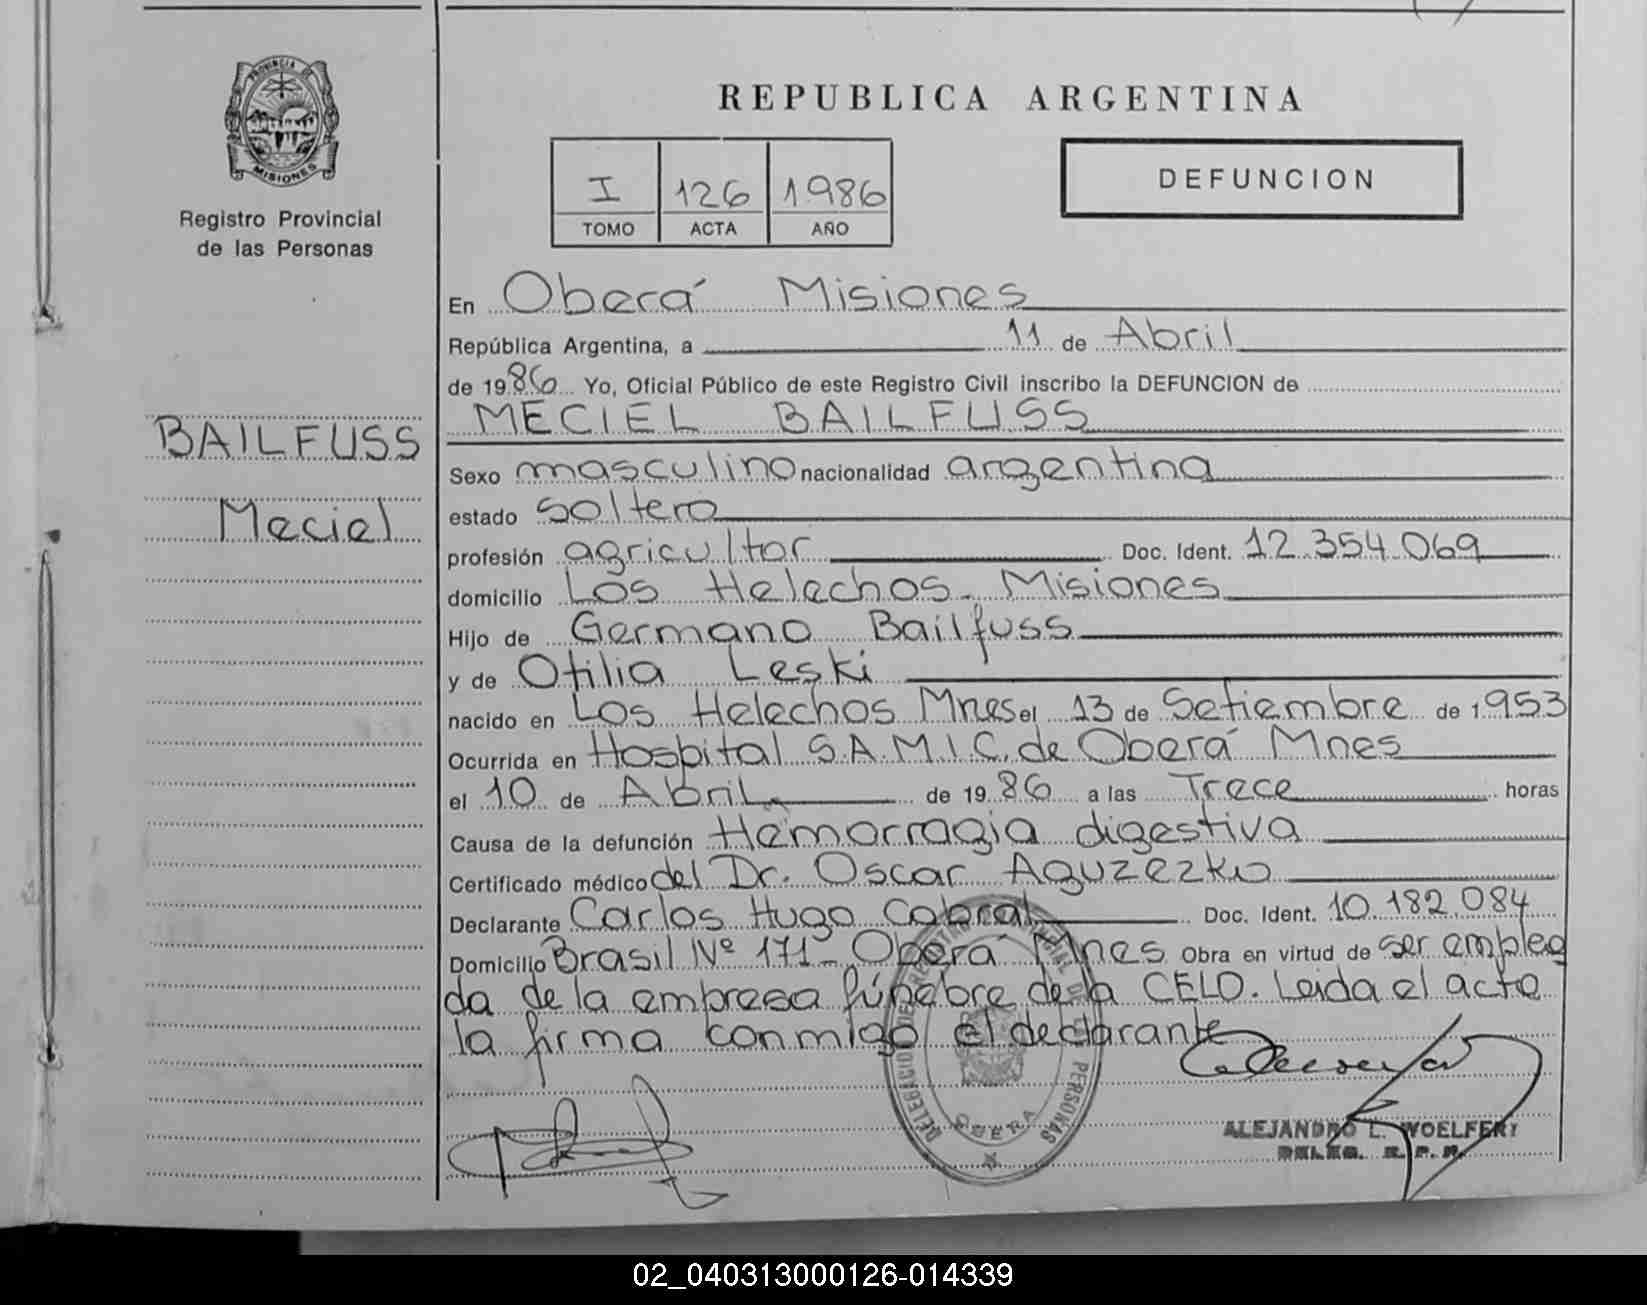 PROVINCIA DE
MISIONES
Registro Provincial
de las Personas
BAILFUSS
Meciel
REPUBLICA ARGENTINA
I 126 1986
TOMO ACTA AÑO
DEFUNCION
En Oberá Misiones
República Argentina, a 11 de Abril
de 1986 Yo, Oficial Público de este Registro Civil inscribo la DEFUNCION de
MECIEL BAILFUSS
Sexo masculino nacionalidad argentina
estado soltero
profesión agricultor Doc. Ident. 12.354.069
domicilio Los Helechos. Misiones
Hijo de Germano Bailfuss
y de Otilia Leski
nacido en Los Helechos Mnes el 13 de Setiembre de 1953
Ocurrida en Hospital S.A.M.I.C. de Oberá Mnes
el 10 de Abril de 1986 a las Trece horas
Causa de la defunción Hemorragia digestiva
Certificado médico del Dr. Oscar Aguzezko
Declarante Carlos Hugo Cabral Doc. Ident. 10.182.084
Domicilio Brasil Nº 171- Oberá Mnes Obra en virtud de ser emplea
da de la empresa fúnebre de la CELO. Leida el acta
la firma conmigo el declarante
DELEGACION DEL REGISTRO PROVINCIAL DE LAS PERSONAS
OBERA
ALEJANDRO L. WOELFERT
DELEG. R. P. P.
02_040313000126-014339